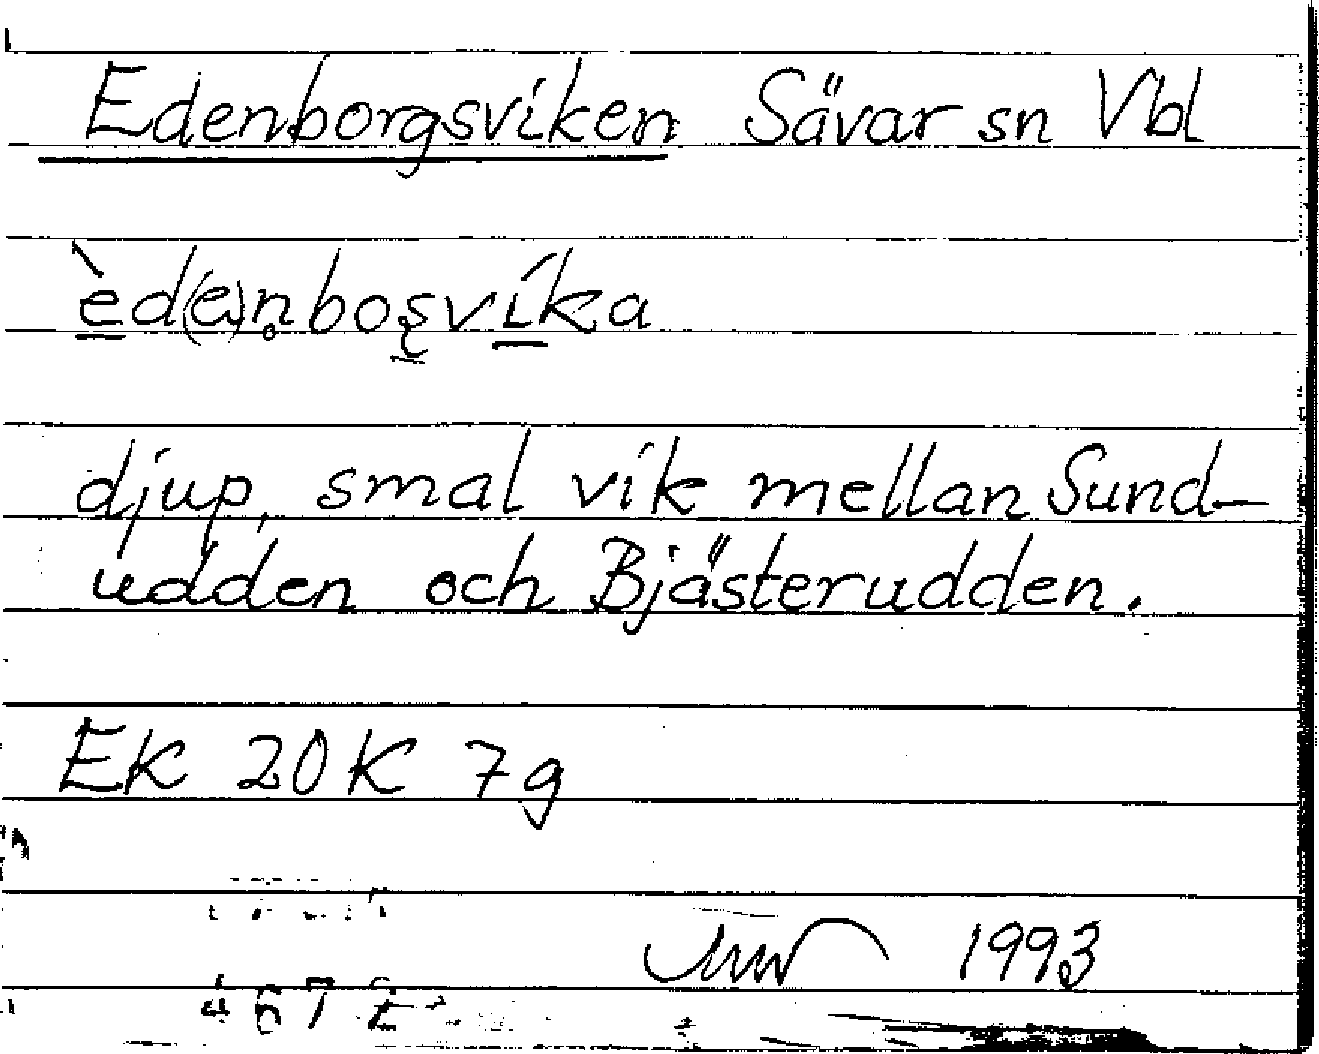 Edenborgsviken Sävar sn Vbl
èd(e)n̥bos̨víka
djup, smal vik mellan Sund-
udden och Bjästerudden.
EK 20K 7g
1993
4672